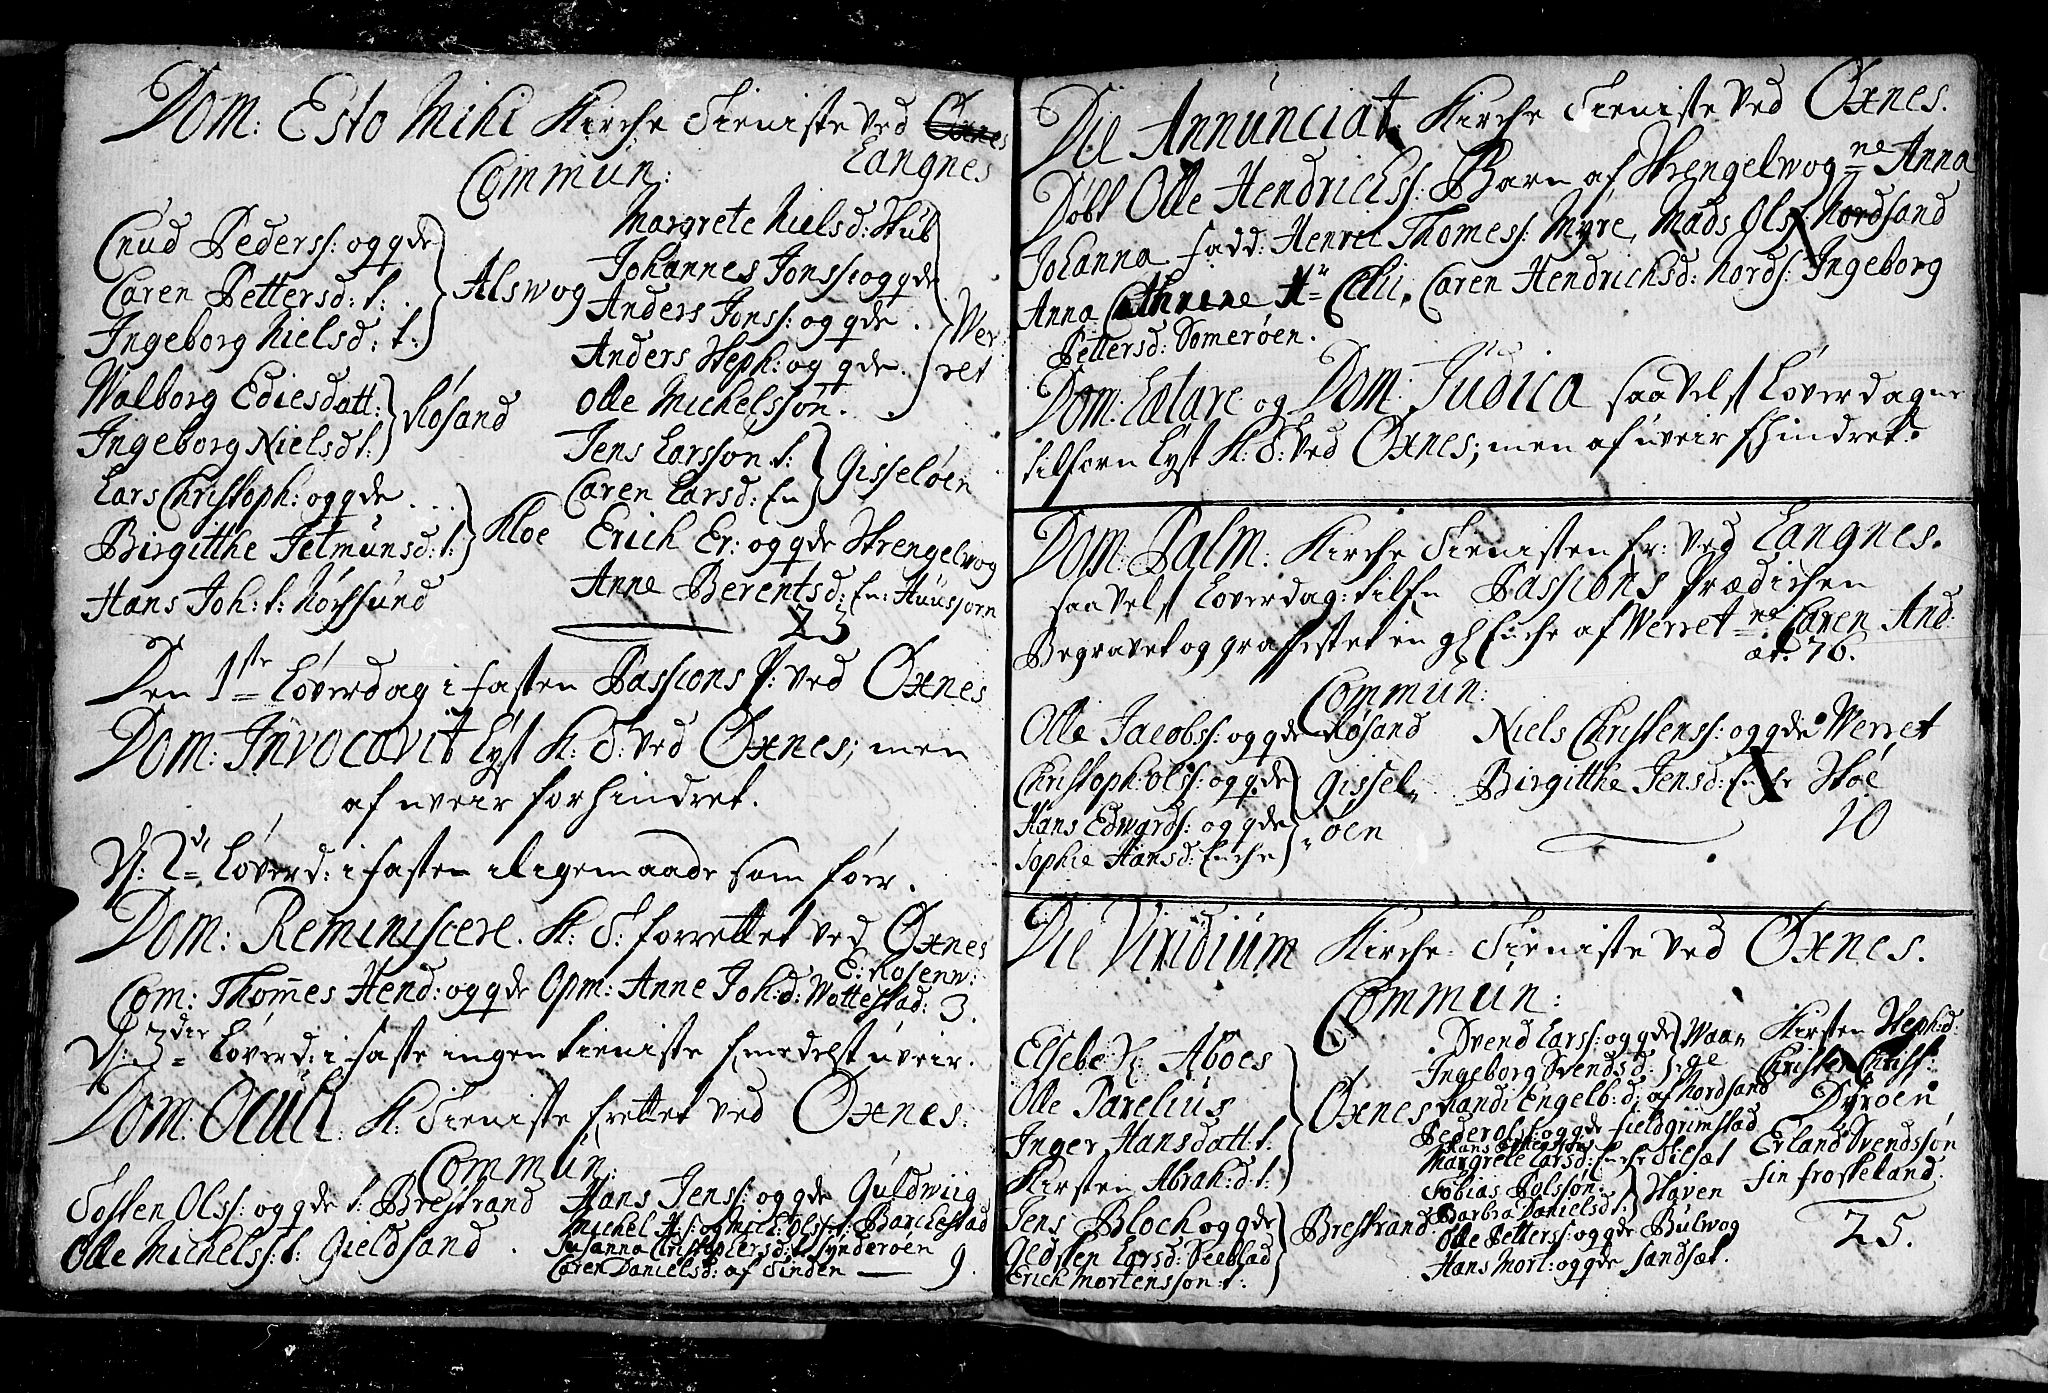 Dom: Esto Mihi Kirche Tieniste ved Öxnes
Langnes
Commun:
Cnud Peders: og qde
Caren Petters d: t:
Ingeborg Nielsd: t:
Alswog
Walborg Ediesdatt:
Ingeborg Nielsd t:
Røsand
Lars Christoph: og qde
Birgitthe Jetmunsd: t:
Kloe
Hans Joh: t: Nörsund
Margrete Nielsd: Stub
Johannes Jonss: og qde
Anders Jonss: og qde
Anders Steph: og qde
Olle Michelssøn.
Werret
Jens Larssøn t:
Caren Larsd: En
Gisseløen
Erich Er: og qde Strengelwog
Anne Berentsd: En: Huusjorn
23
Den 1ste Løverdag i fasten Passions P: ved Öxnes
Dom: Invocavit lyst K: T: ved Öxnes; men
af uveir forhindret.
D: 2de Løverd: i fasten iligemaade som føer.
Dom: Reminiscere. K: T: forrettet ved Öxnes
E: Rosenw:
Com: Thomes Hend: og qde Opm: Anne Joh: d: Wottestad: 3.
D: 3die Løverd: i faste ingen tieniste formedelst uveir.
Dom: Oculi: K: Tieniste frettet ved Öxnes:
Commun:
Tosten Olss: og qde t: Brestrand
Olle Michelss: t: Gieldsand
Hans Jenss: og qde Guldwiig
Michel Olss: t: Barckestad
Susanna Christophersd: t: Synderøen
Caren Danielsd: af Tinden — 9.
Die Annunciat: Kirche Tieniste ved Öxnes.
Døbt Olle Hendrichss: Barn af Strengelwog ne Anna
Johanna fadd: Henric Thomess: Myre, Mads Olss: Nordsand
Anna Cathrine Hr Celii, Caren Hendrichsd: Nords: Ingeborg
Pettersd: Somerøen.
Dom: Lætare og Dom: Judica saavelst Løverdagne
tilforn lyst K: T: ved Öxnes; men af uveir fhindret.
Dom: Palm: Kirche Tienisten fr: ved Langnes.
saavelst Løverdag: tilfn Passions Prædichen
Begravet og graffestet en gl Enche af Werret ne Caren And:
æt: 76.
Commun:
Olle Jacobss: og qde Røsand
Christoph: Olss: og qde
Hans Edwards: og qde
Sophie Hansd: Enche
Gisseløen
Niels Christenss: og qde Werret
Birgitthe Jensd: Enche Stoe
10
Die Viridium Kirche Tieniste ved Öxnes.
Commun:
Elsebe Aboes
Olle Parelius
Inger Hansdatt: t:
Kirsten Abrah: d: t:
Öxnes
Jens Bloch og qde
Gedsken Larsd: Seeblad
Erich Mortenssøn: t:
Brestrand
Svend Larss: og qde
Ingeborg Svendsd:
Waage
Randi Engelb: d: af Nordsand
Peder Olss: og qde fieldgrimstad
Margrete Larsd: Enche Tilsæt
Tobias Polsson
Barbra Danielsd t:
Haven
Olle Petterss: og qde Bulwog
Hans Mort: og qde Sandsæt.
Kirsten Steph: d:
Christen Christ:
Dyrøen
Erland Svendssøn
fin froskeland.
25.